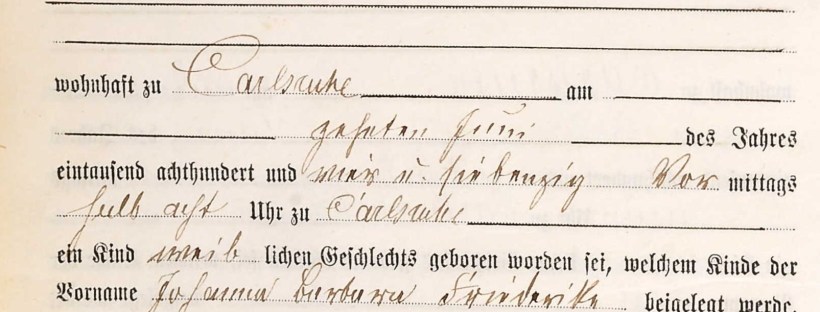 wohnhaft zu Carlsruhe am
zehnten Juni des Jahres
eintausend achthundert und vier u. siebenzig Vor mittags
halb acht Uhr zu Carlsruhe
ein Kind weib lichen Geschlechts geboren worden sei, welchem Kinde der
Vorname Johanna Barbara Friederike beigelegt werde.